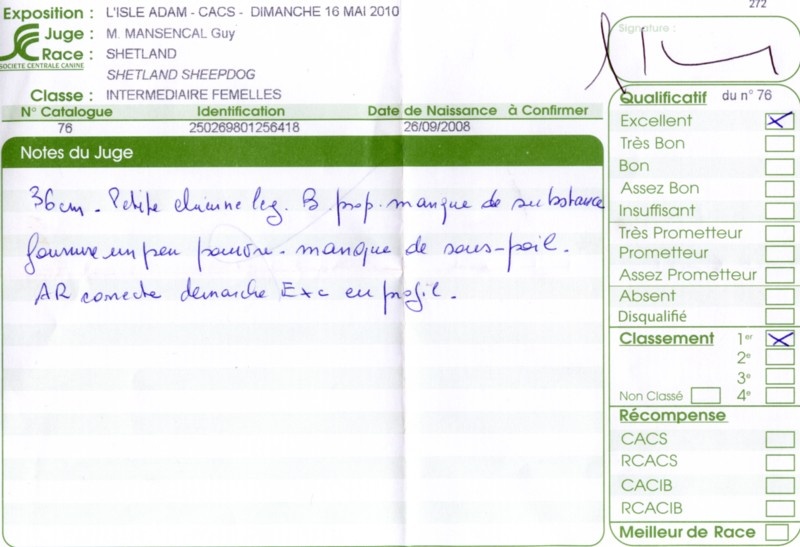 272
Exposition : L'ISLE ADAM - CACS - DIMANCHE 16 MAI 2010
Juge : M. MANSENCAL Guy
Race : SHETLAND
SOCIETE CENTRALE CANINE
SHETLAND SHEEPDOG
Classe : INTERMEDIAIRE FEMELLES
N° Catalogue Identification Date de Naissance à Confirmer
76 250269801256418 26/09/2008
Notes du Juge
36cm. Petite chienne leg. B. prop. manque de substance
fourrure un peu pauvre. manque de sous-poil.
AR correcte demarche Exc en profil.
Signature :
Qualificatif du n° 76
Excellent
Très Bon
Bon
Assez Bon
Insuffisant
Très Prometteur
Prometteur
Assez Prometteur
Absent
Disqualifié
Classement 1er
2e
3e
Non Classé 4e
Récompense
CACS
RCACS
CACIB
RCACIB
Meilleur de Race